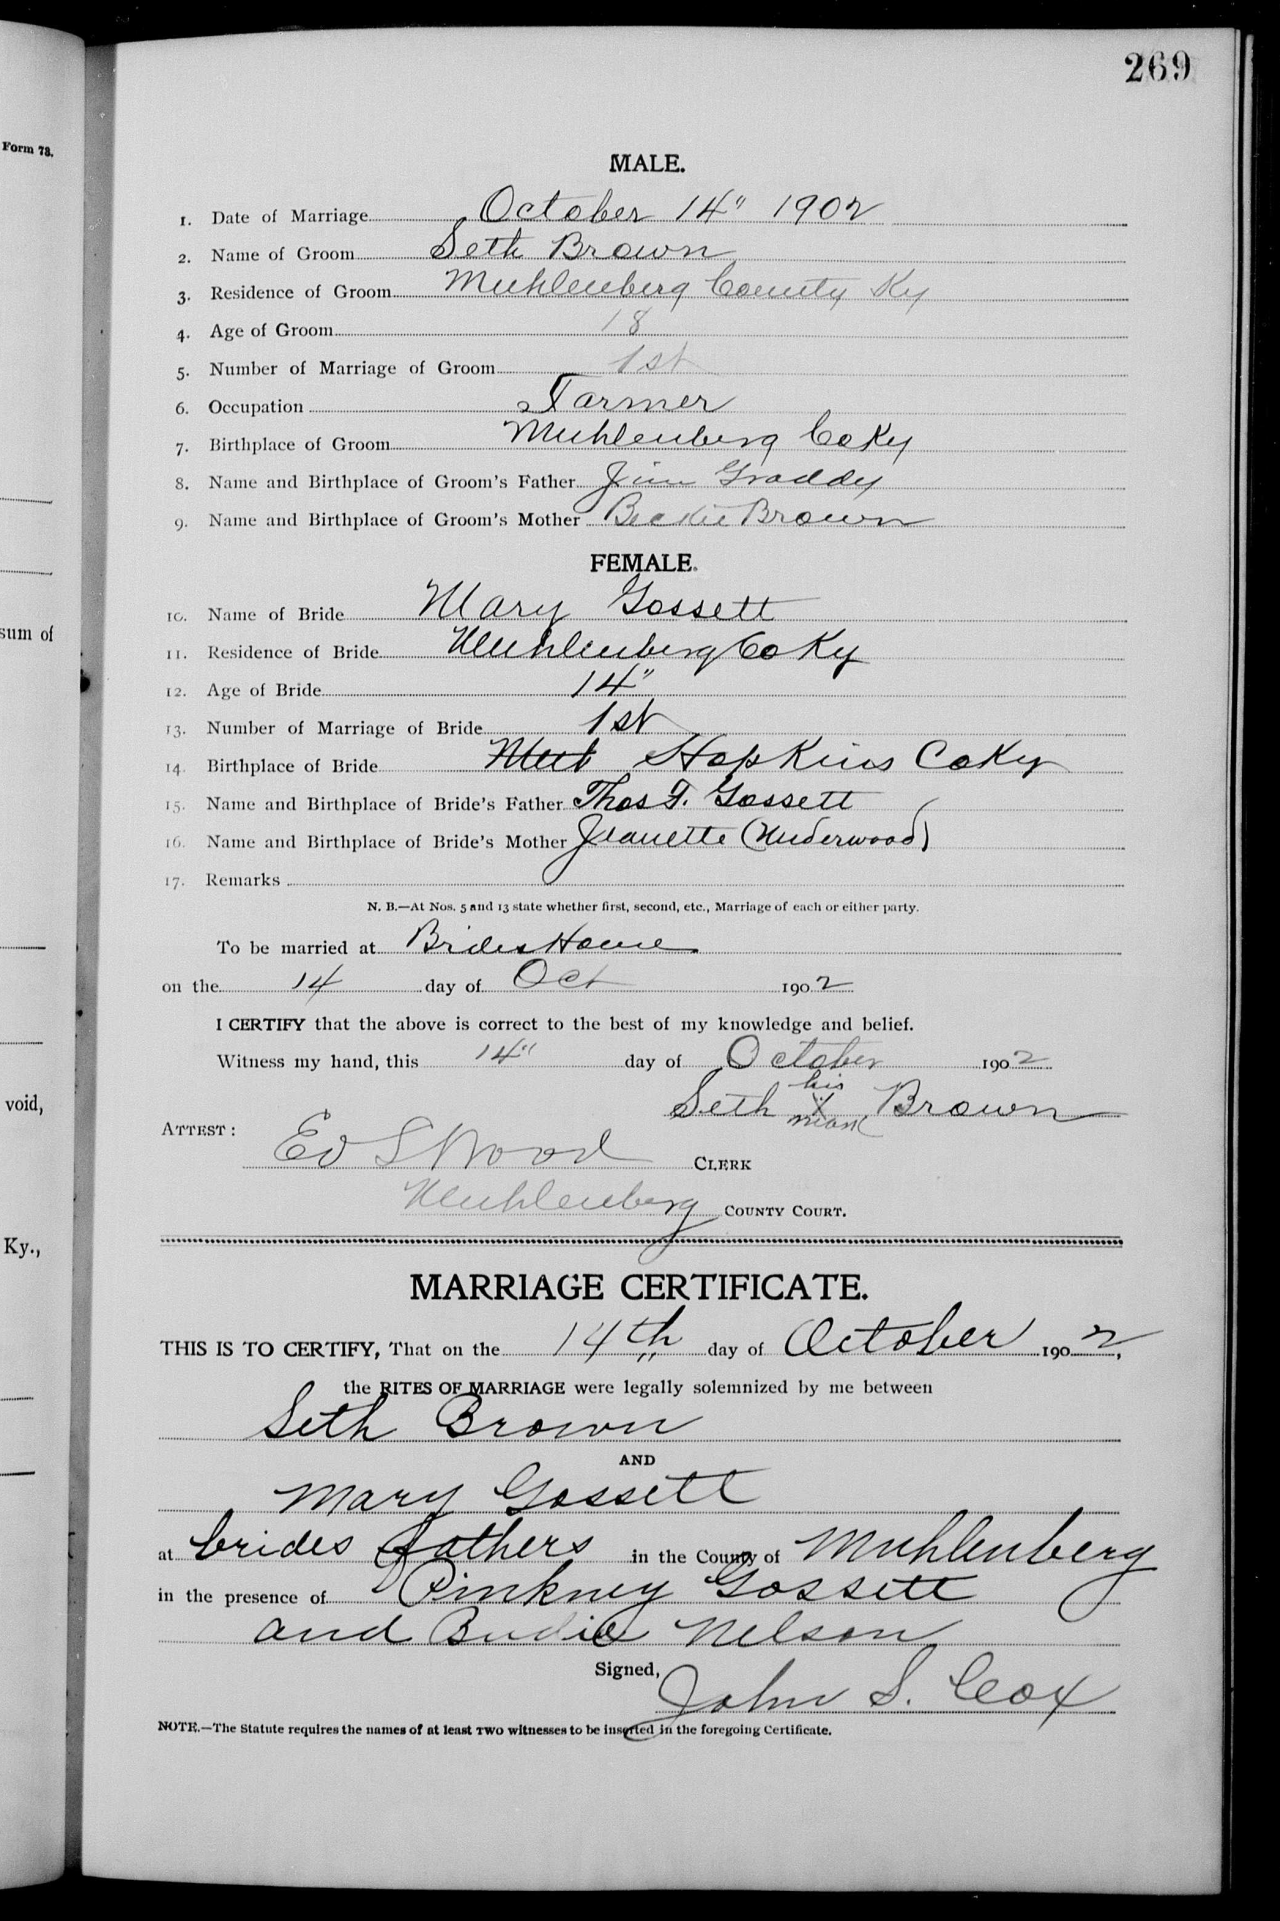 269
Form 78.
MALE.
1. Date of Marriage October 14" 1902
2. Name of Groom Seth Brown
3. Residence of Groom Muhlenberg County Ky
4. Age of Groom 18
5. Number of Marriage of Groom 1st
6. Occupation Farmer
7. Birthplace of Groom Muhlenberg Co Ky
8. Name and Birthplace of Groom's Father Jim Graddy
9. Name and Birthplace of Groom's Mother Beckie Brown
FEMALE.
10. Name of Bride Mary Gossett
sum of
11. Residence of Bride Muhlenberg Co Ky
12. Age of Bride 14"
13. Number of Marriage of Bride 1st
14. Birthplace of Bride Hopkins Co Ky
15. Name and Birthplace of Bride's Father Thos F. Gossett
16. Name and Birthplace of Bride's Mother Jeanette (Underwood)
17. Remarks
N. B.—At Nos. 5 and 13 state whether first, second, etc., Marriage of each or either party.
To be married at Brides Home
on the 14 day of Oct 1902
I CERTIFY that the above is correct to the best of my knowledge and belief.
Witness my hand, this 14" day of October 1902
void,
his
Seth X Brown
mark
ATTEST:
Ed S Wood CLERK
Muhlenberg COUNTY COURT.
Ky.,
MARRIAGE CERTIFICATE.
THIS IS TO CERTIFY, That on the 14th day of October 1902,
the RITES OF MARRIAGE were legally solemnized by me between
Seth Brown
AND
Mary Gossett
at brides fathers in the County of Muhlenberg
in the presence of Pinkney Gossett
and Nelson
Signed, John S. Cox
NOTE.—The Statute requires the names of at least TWO witnesses to be inserted in the foregoing Certificate.